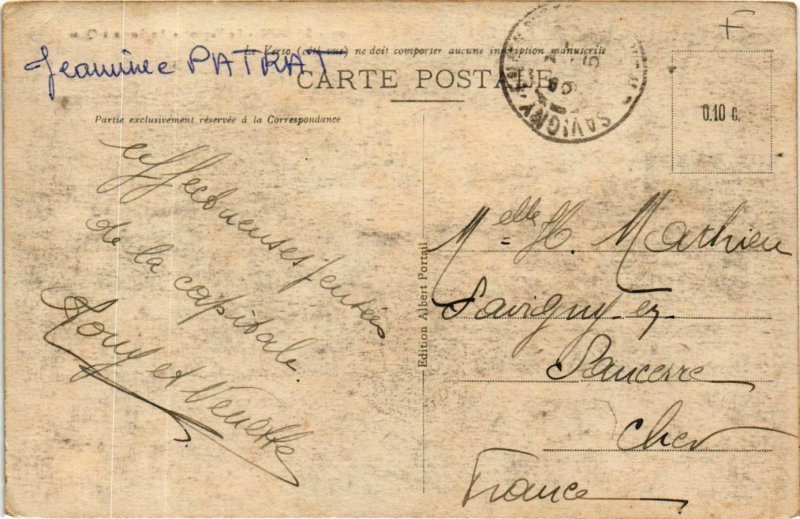 Le Verso (côté vue) ne doit comporter aucune inscription manuscrite
Jeannine PATRAT
CARTE POSTALE
Partie exclusivement réservée à la Correspondance
0.10 c.
SAVIGNY
F
affectueuses pensées
de la capitale
et
Edition Albert Portail
Melle H. Mathieu
Savigny-en
Sancerre
Cher
France